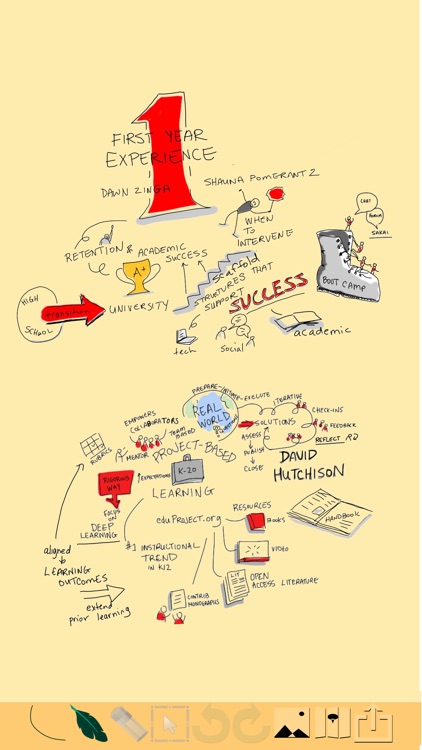 1
FIRST YEAR
EXPERIENCE
DAWN ZINGA
SHAUNA POMERANTZ
WHEN
TO
INTERVENE
RETENTION & ACADEMIC
SUCCESS
A+
CHAT
FORUM
SAKAI
BOOT CAMP
HIGH
SCHOOL
transition
UNIVERSITY
scaffold
STRUCTURES THAT
SUPPORT
SUCCESS
tech
Social
academic
PREPARE-INITIATE-EXECUTE
ITERATIVE
REAL
WORLD
SOLUTIONS
CHECK-INS
FEEDBACK
REFLECT
ASSESS
PUBLISH
CLOSE
EMPOWERS
COLLABORATORS
TEAM
BASED
MENTOR
RUBRICS
PROJECT-BASED
K-20
LEARNING
DAVID
HUTCHISON
RIGOROUS
WAY
↑EXPECTATIONS
FOCUS
on
DEEP
LEARNING
HANDBOOK
eduProject.org
RESOURCES
BOOKS
VIDEO
#1 INSTRUCTIONAL
TREND
IN K12
LIT
OPEN
ACCESS LITERATURE
CONTRIB
MONOGRAPHS
aligned
to
LEARNING
OUTCOMES
extend
prior learning